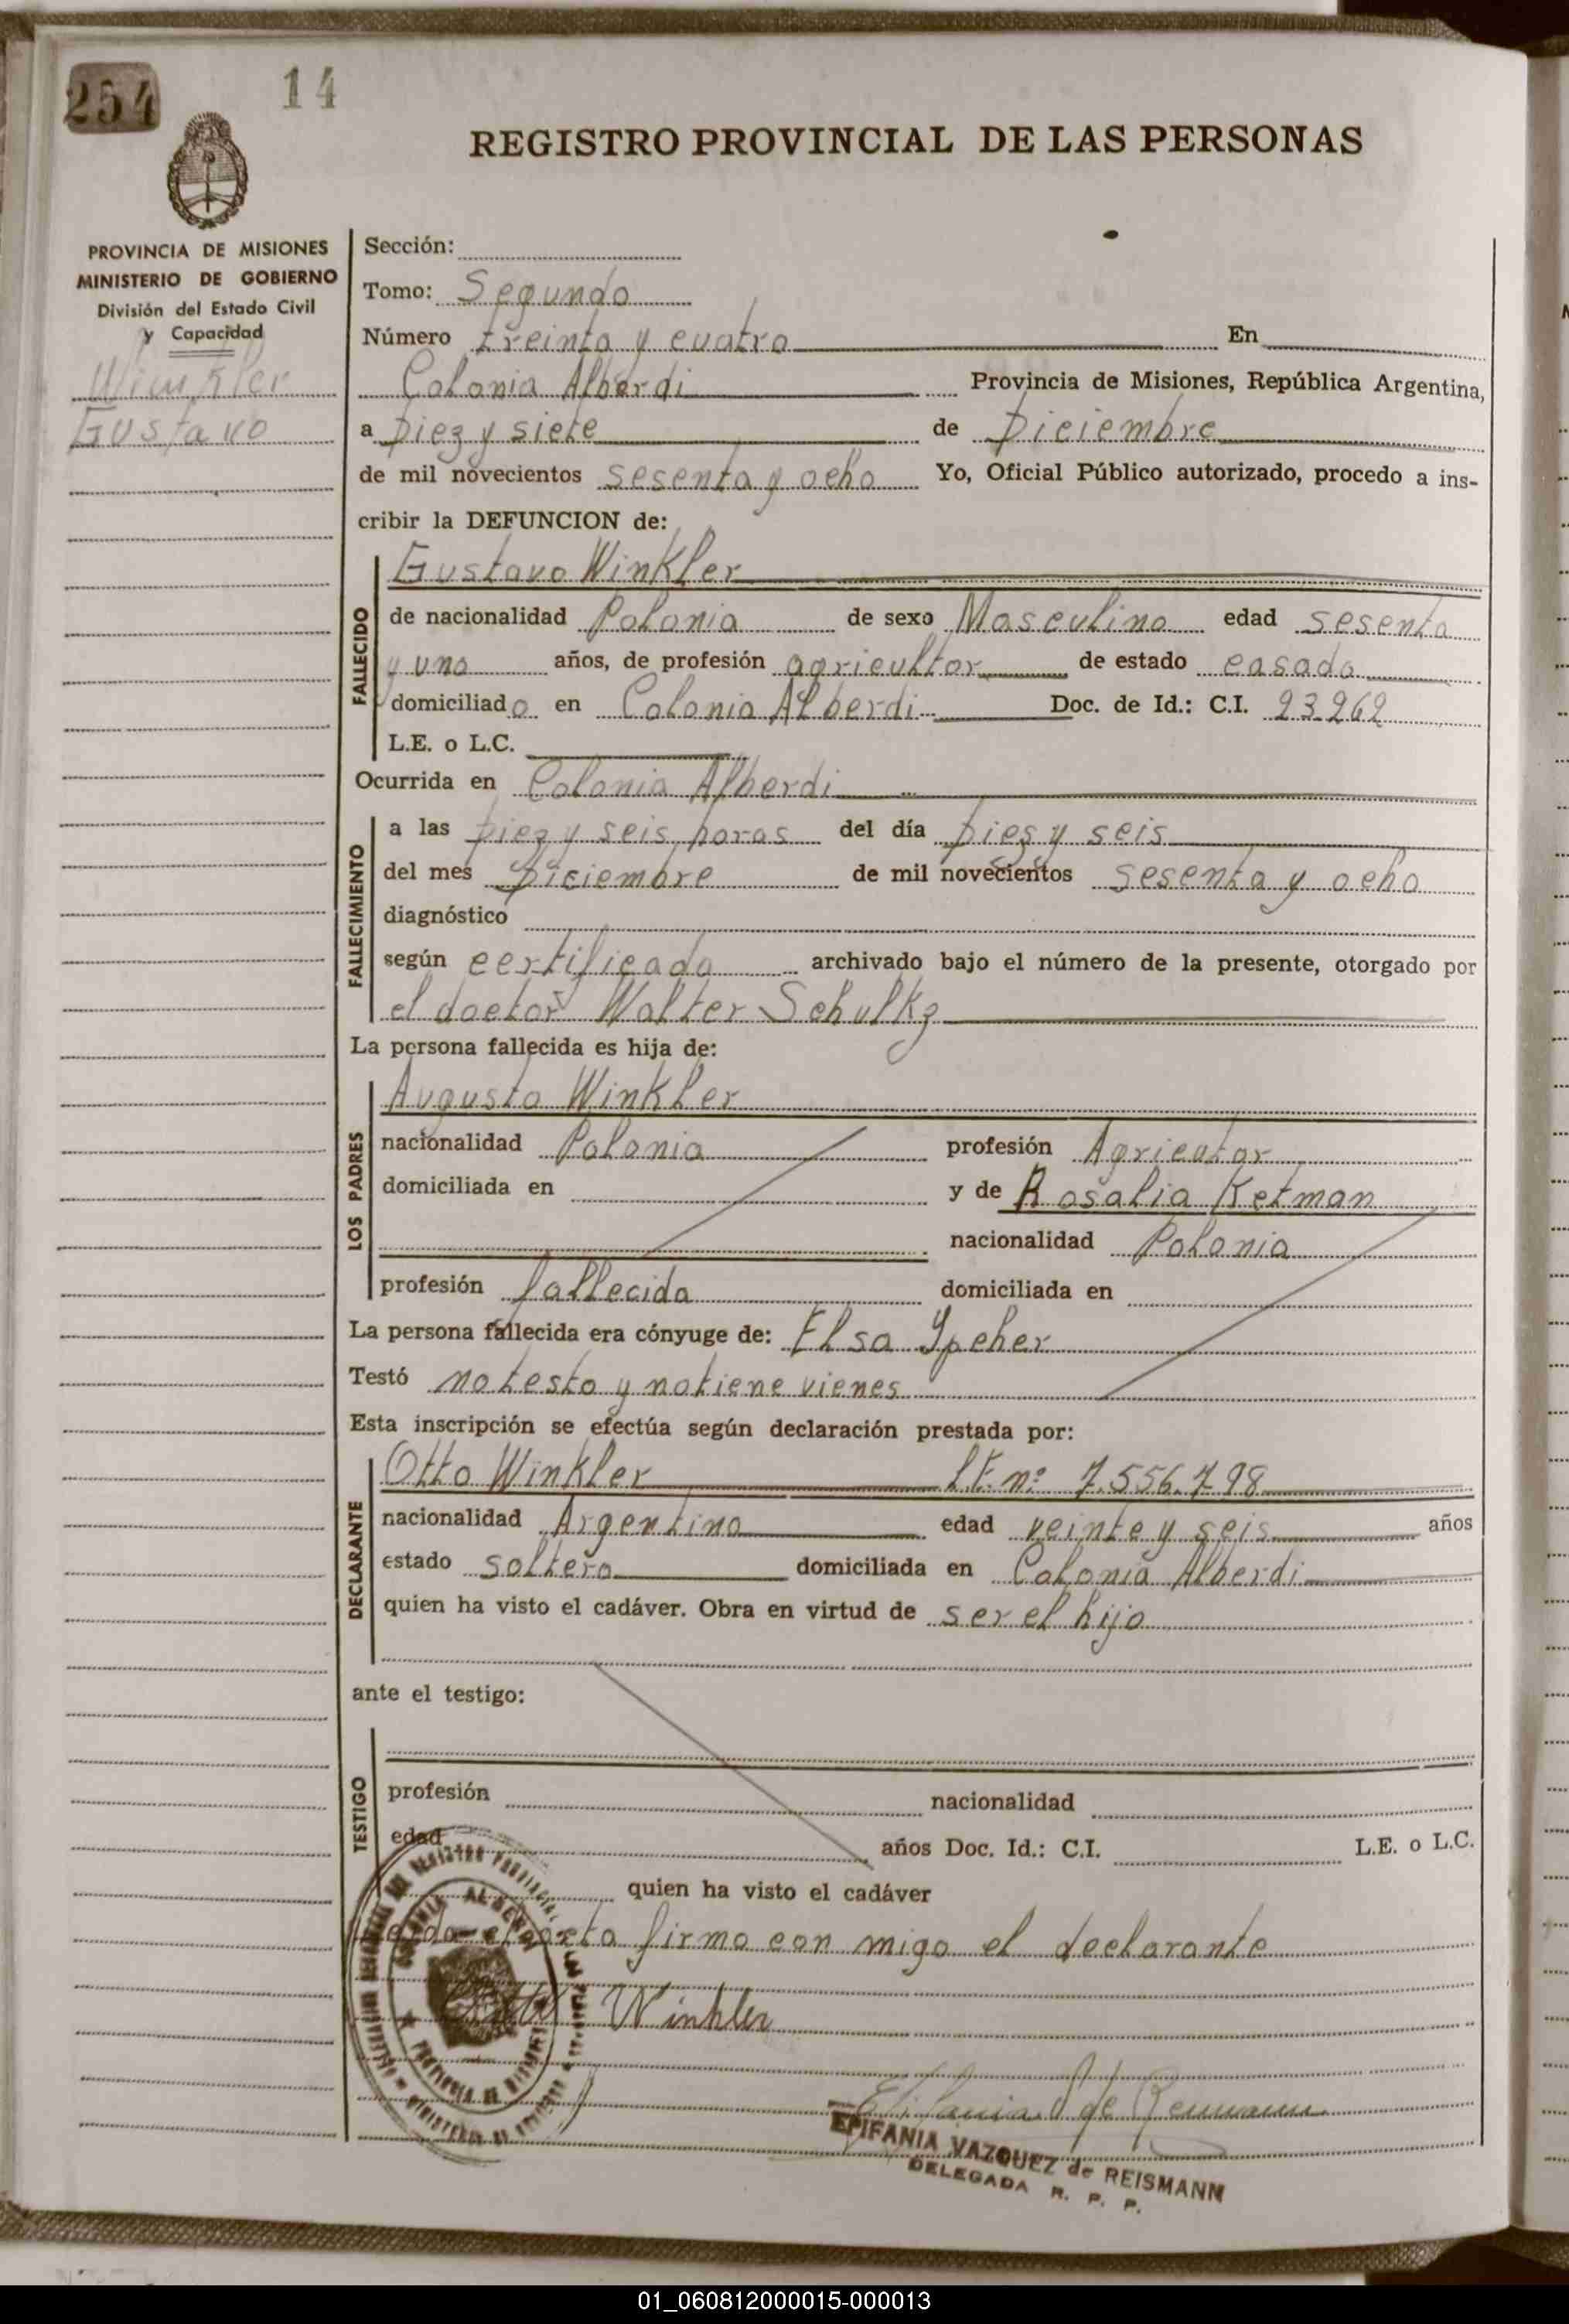 254
14
REGISTRO PROVINCIAL DE LAS PERSONAS
PROVINCIA DE MISIONES
MINISTERIO DE GOBIERNO
División del Estado Civil
y Capacidad
Winkler
Gustavo
Sección:
Tomo: Segundo
Número treinta y cuatro En
Colonia Alberdi Provincia de Misiones, República Argentina,
a Diez y siete de Diciembre
de mil novecientos sesenta y ocho Yo, Oficial Público autorizado, procedo a ins-
cribir la DEFUNCION de:
FALLECIDO
Gustavo Winkler
de nacionalidad Polonia de sexo Masculino edad sesenta
y uno años, de profesión agricultor de estado casado
domiciliado en Colonia Alberdi Doc. de Id.: C.I. 23262
L.E. o L.C.
Ocurrida en Colonia Alberdi
FALLECIMIENTO
a las Diez y seis horas del día Diez y seis
del mes Diciembre de mil novecientos sesenta y ocho
diagnóstico
según certificado archivado bajo el número de la presente, otorgado por
el doctor Walter Schulkz
La persona fallecida es hija de:
LOS PADRES
Augusto Winkler
nacionalidad Polonia profesión Agricutor
domiciliada en y de Rosalia Ketman
nacionalidad Polonia
profesión fallecida domiciliada en
La persona fallecida era cónyuge de: Elsa Speher
Testó no testo y no tiene vienes
Esta inscripción se efectúa según declaración prestada por:
DECLARANTE
Otto Winkler L.E. nº 7.556.798
nacionalidad Argentino edad veinte y seis años
estado soltero domiciliada en Colonia Alberdi
quien ha visto el cadáver. Obra en virtud de ser el hijo
ante el testigo:
TESTIGO
profesión nacionalidad
edad años Doc. Id.: C.I. L.E. o L.C.
quien ha visto el cadáver
el acta firmo con migo el declarante
Otto Winkler
Epifania V de Reismann
EPIFANIA VAZQUEZ de REISMANN
DELEGADA R. P. P.
01_060812000015-000013